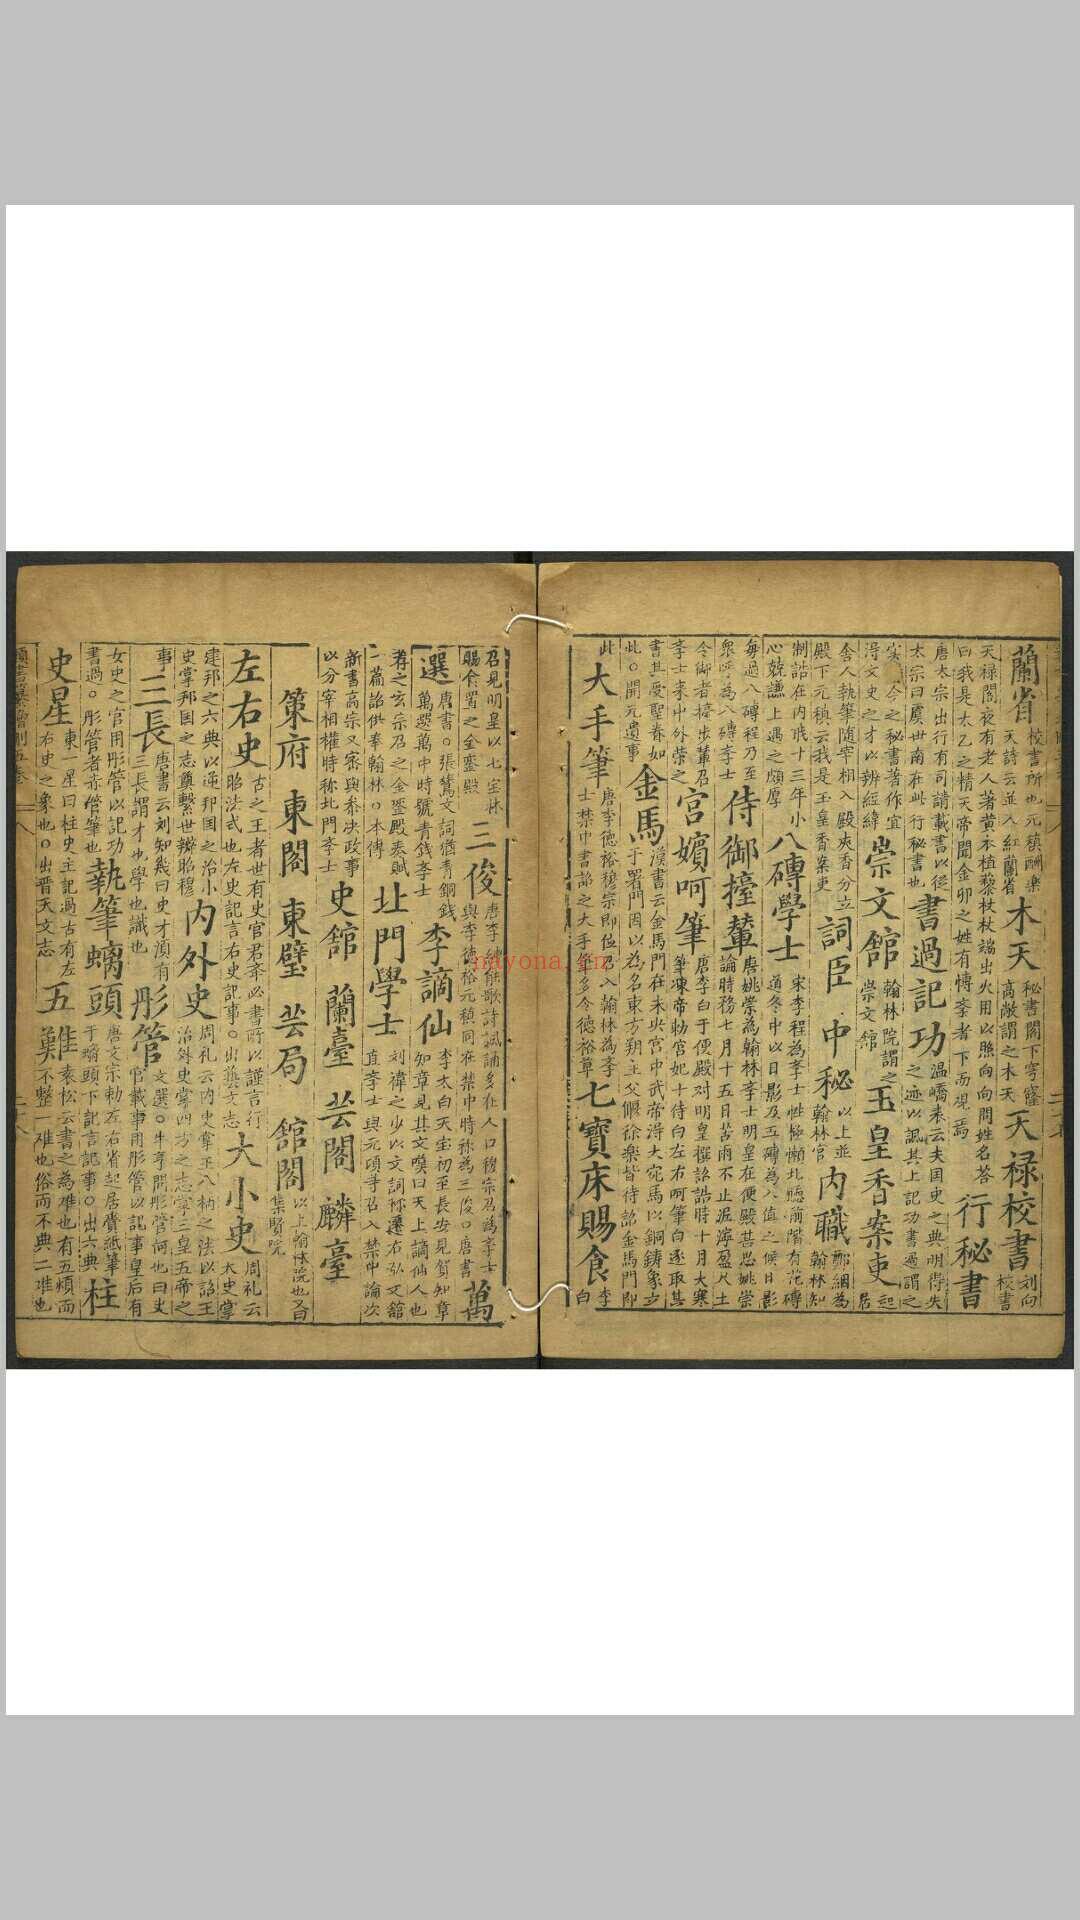 蘭省 校書所也元稹酬樂天詩云並入紅蘭省 木天 秘書閣下穹窿高敞謂之木天 天禄校書 刘向校書
天禄閣夜有老人著黄衣植藜杖杖端出火用以照向向問姓名荅
曰我是太乙之精天帝聞金卯之姓有博斈者下而覌焉 行秘書
唐太宗出行有司請載書以從太宗曰虞世南在此行秘書也 書過記功 温嶠表云夫国史之典明得失之迹以諷其上記功書過謂之
实录今之秘書著作宜淂文史之才以辨經緯 崇文舘 翰林院謂之崇文舘 玉皇香案吏 起居
舍人執筆随宰相入殿夾香分立殿下元稹云我是玉皇香案吏 詞臣 中秘 以上並翰林官 内職 鄭絪為翰林知
制誥在内职十三年小心兢謙上遇之頗厚 八磚學士 宋李程為斈士性極懶北聴前階有花磚道冬中以日影及五磚為入值之候日影
每過八磚程乃至衆呼為八磚斈士 侍御擡輦 唐姚崇為翰林斈士明皇在便殿甚思姚崇論時務七月十五日苦雨不止泥濘盈尺上
令御者擡步輦召斈士来中外榮之 宮嬪呵筆 唐李白于便殿对明皇撰詔誥時十月大寒筆凍帝勑宮妃十侍白左右呵筆白遂取其
書其受聖眷如此○開元遺事 金馬 漢書云金馬門在未央宮中武帝淂大宛馬以銅鋳象立于署門因以為名東方朔主父偃徐樂皆待詔金馬門即
此 大手筆 唐李德裕穆宗即位召入翰林為斈士禁中書詔之大手筆多令德裕草 七寳床賜食 李白
召見明皇以七宝床賜食置之金鑾殿 三俊 唐李紳能歌詩諷誦多在人口穆宗召為斈士與李德裕元稹同在禁中時称為三俊○唐書 萬
選 唐書○張鷟文詞猶青銅錢萬選萬中時號青錢斈士 李謫仙 李太白天宝初至長安見賀知章知章見其文嘆曰天上謫仙人也
荐之玄宗召之金銮殿奏賦一篇詔供奉翰林○本傳 北門學士 刘禕之少以文詞称遷右弘文舘直斈士與元萬頃等召入禁中論次
新書高宗又密與参决政事以分宰相權時称北門斈士 史舘 蘭臺 芸閣 麟臺
策府 東閣 東璧 芸局 舘閣 以上翰林院也又曰集賢院
左右史 古之王者世有史官君斈必書所以謹言行昭法式也左史記言右史記事○出藝文志 大小史 周礼云大史掌
建邦之六典以逆邦国之治小史掌邦国之志奠繫世辨昭穆 内外史 周礼云内史掌王八柄之法以詔王治外史掌四方之志掌三皇五帝之
事 三長 唐書云刘知幾曰史才湏有三長謂才也學也識也 彤管 文選○牛亨問彤管何也曰史官載事用彤管以記事皇后有
女史之官用彤管以記功書過○彤管者赤管筆也 執筆螭頭 唐文宗勅左右省起居賫紙筆于螭頭下記言記事○出六典 柱
史星 東一星曰柱史主記過古有左右史之象也○出晋天文志 五難 袁松云書之為难也有五煩而不整一难也俗而不典二难也